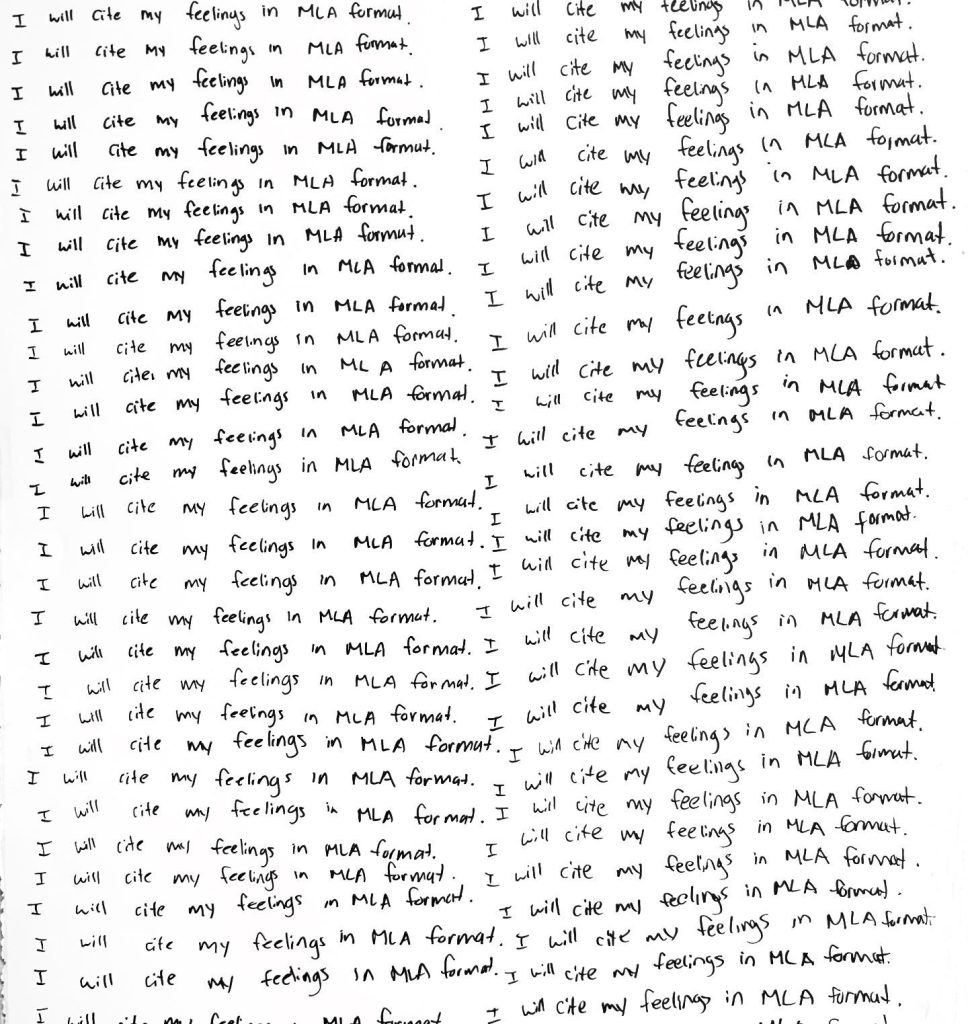 I will cite my feelings in MLA format.
I will cite my feelings in MLA format.
I will cite my feelings in MLA format.
I will cite my feelings in MLA format.
I will cite my feelings in MLA format.
I will cite my feelings in MLA format.
I will cite my feelings in MLA format.
I will cite my feelings in MLA format.
I will cite my feelings in MLA format.
I will cite my feelings in MLA format.
I will cite my feelings in MLA format.
I will cite my feelings in MLA format.
I will cite my feelings in MLA format.
I will cite my feelings in MLA format.
I will cite my feelings in MLA format.
I will cite my feelings in MLA format.
I will cite my feelings in MLA format.
I will cite my feelings in MLA format.
I will cite my feelings in MLA format.
I will cite my feelings in MLA format.
I will cite my feelings in MLA format.
I will cite my feelings in MLA format.
I will cite my feelings in MLA format.
I will cite my feelings in MLA format.
I will cite my feelings in MLA format.
I will cite my feelings in MLA format.
I will cite my feelings in MLA format.
I will cite my feelings in MLA format.
I will cite my feelings in MLA format.
I will cite my feelings in MLA format.
I will cite my feelings in MLA format
I will cite my feelings in MLA format.
I will cite my feelings in MLA format.
I will cite my feelings in MLA format.
I will cite my feelings in MLA format.
I will cite my feelings in MLA format.
I will cite my feelings in MLA format.
I will cite my feelings in MLA format.
I will cite my feelings in MLA format.
I will cite my feelings in MLA format.
I will cite my feelings in MLA format.
I will cite my feelings in MLA format.
I will cite my feelings in MLA format.
I will cite my feelings in MLA format
I will cite my feelings in MLA format.
I will cite my feelings in MLA format.
I will cite my feelings in MLA format.
I will cite my feelings in MLA format.
I will cite my feelings in MLA format.
I will cite my feelings in MLA format.
I will cite my feelings in MLA format.
I will cite my feelings in MLA format
I will cite my feelings in MLA format.
I will cite my feelings in MLA format.
I will cite my feelings in MLA format.
I will cite my feelings in MLA format.
I will cite my feelings in MLA format.
I will cite my feelings in MLA format.
I will cite my feelings in MLA format.
I will cite my feelings in MLA format.
I will cite my feelings in MLA format.
I will cite my feelings in MLA format.